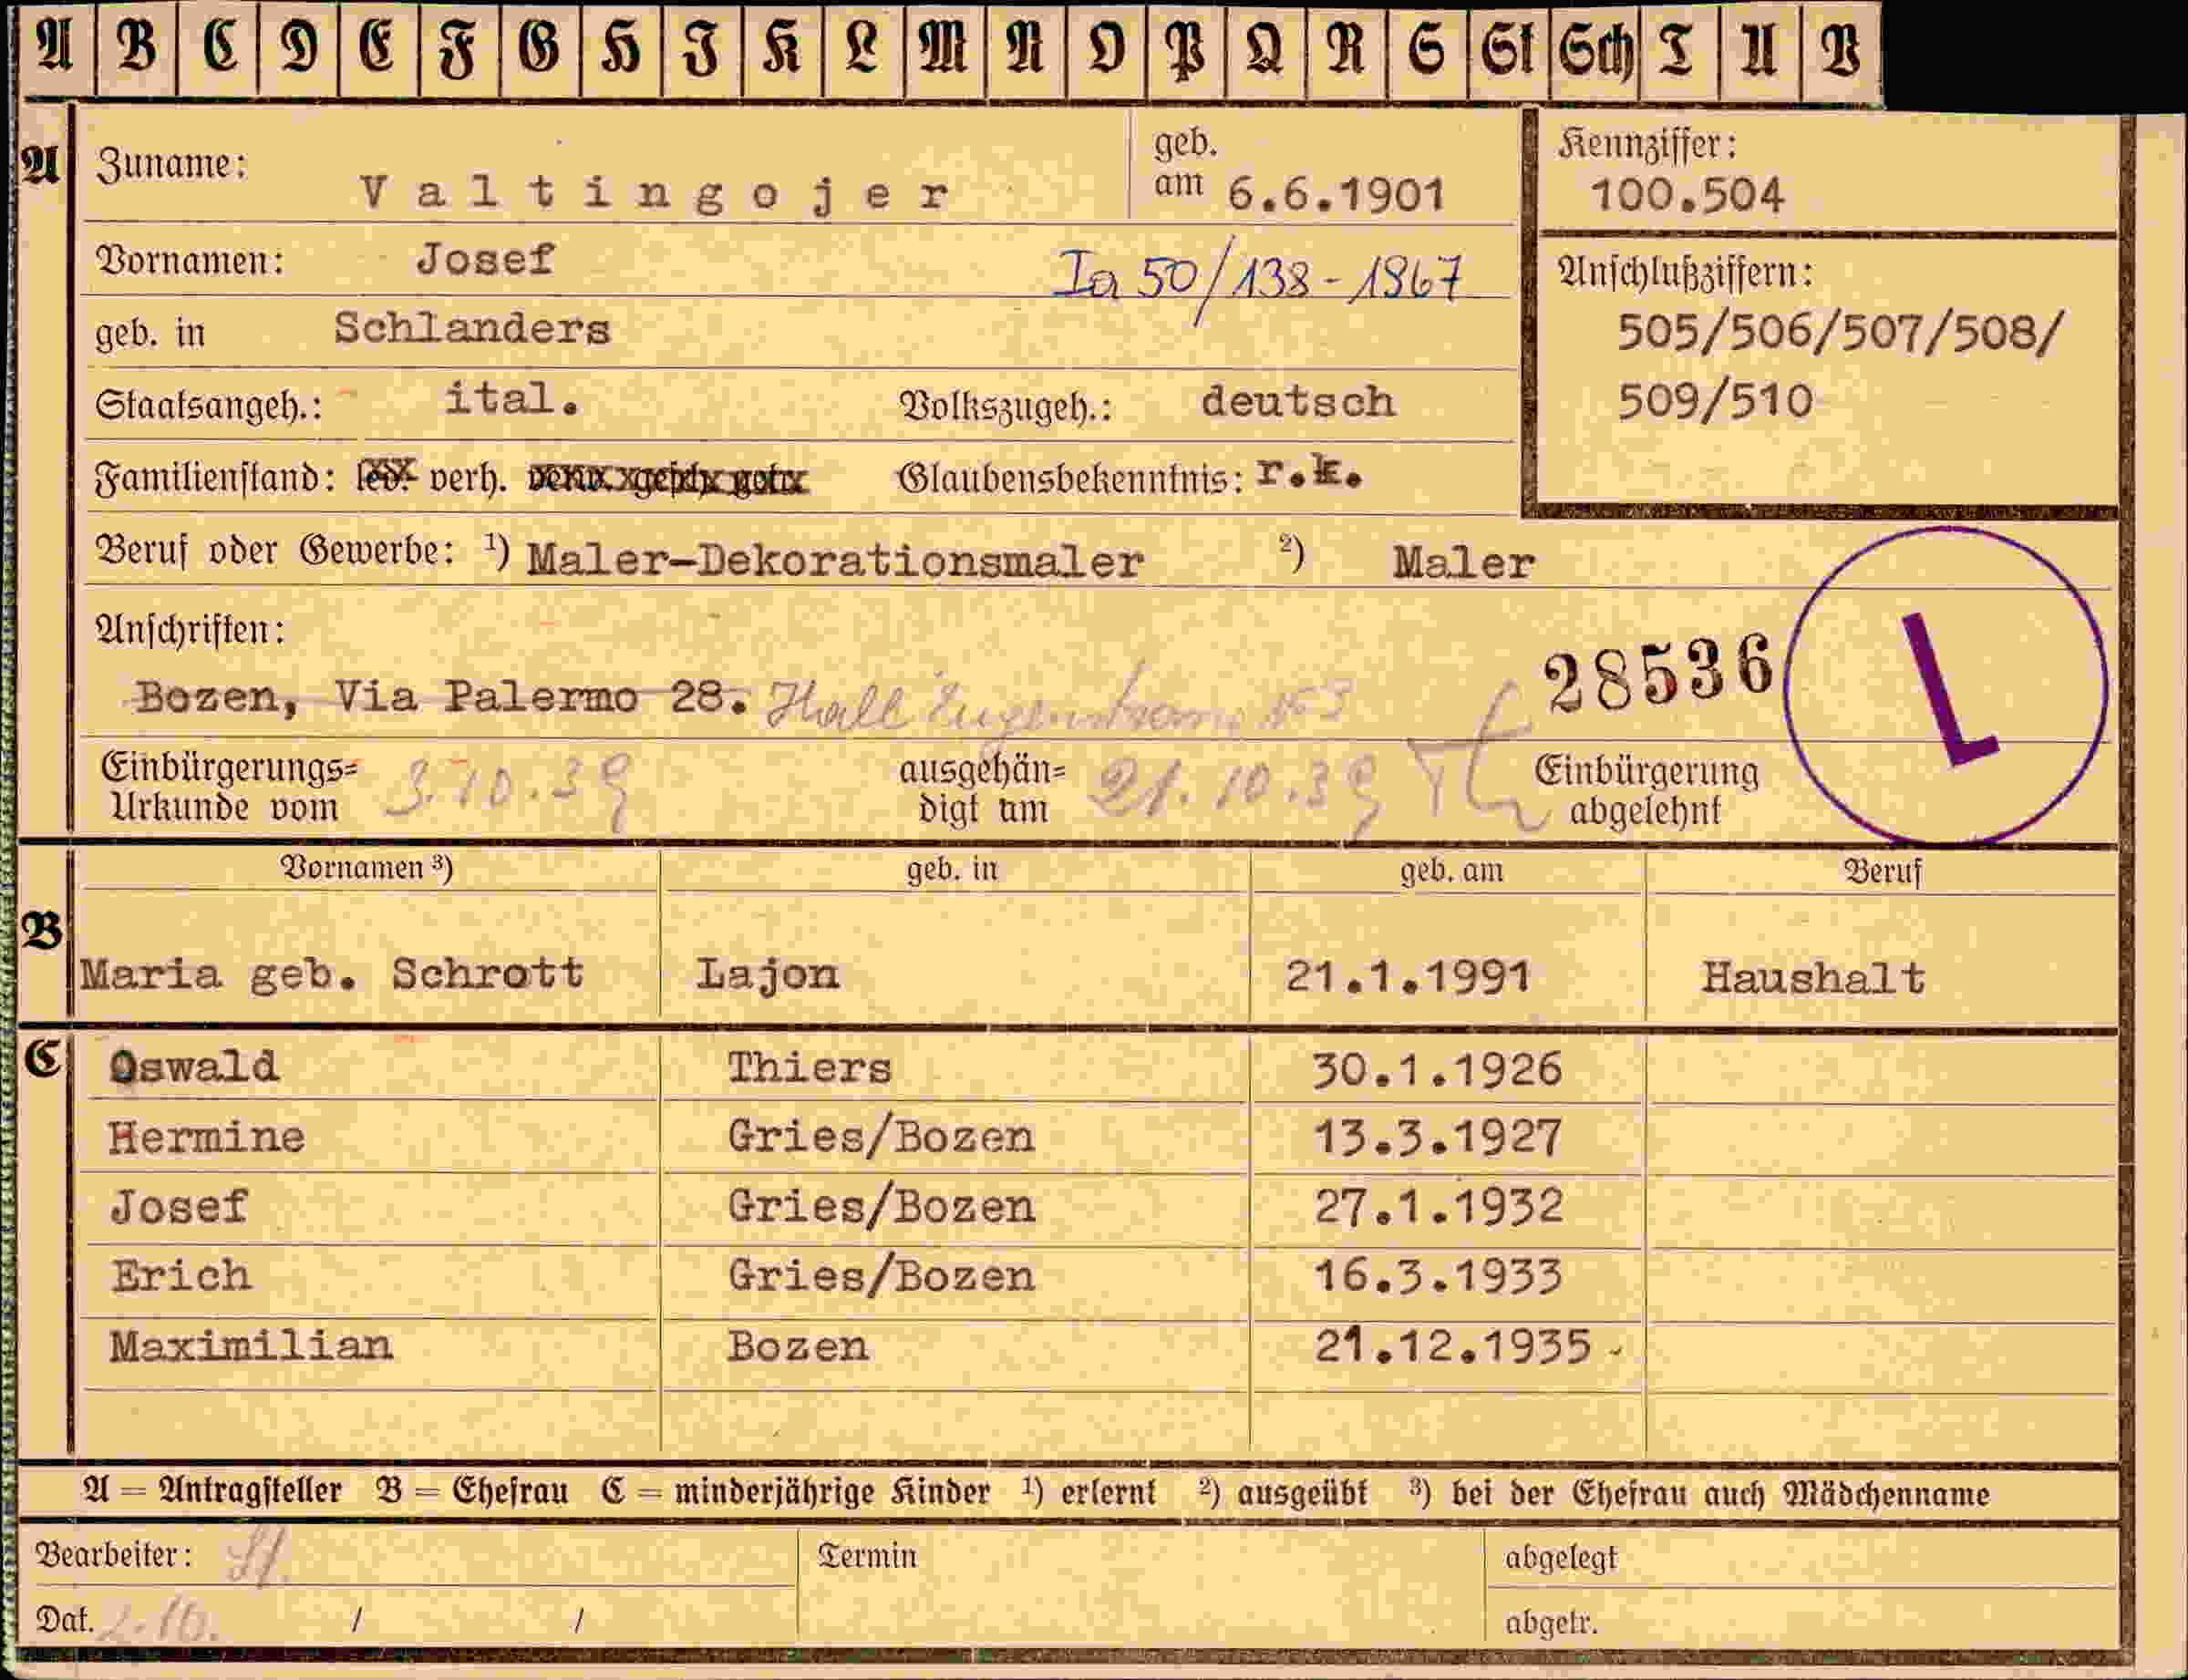 A B C D E F G H J K L M N O P Q R S St Sch T U V
A
Zuname: Valtingojer
geb. am 6.6.1901
Kennziffer: 100.504
Vornamen: Josef
Ia 50/138-1967
Anschlußziffern:
505/506/507/508/
509/510
geb. in Schlanders
Staatsangeh.: ital. Volkszugeh.: deutsch
Familienstand: led. verh. verw. gesch. getr. Glaubensbekenntnis: r.k.
Beruf oder Gewerbe: ¹) Maler-Dekorationsmaler ²) Maler
Anschriften:
28536
L
Bozen, Via Palermo 28. Hall
Einbürgerungs=
Urkunde vom 3.10.39
ausgehän=
digt am 21.10.39
Einbürgerung
abgelehnt
Vornamen ³) geb. in geb. am Beruf
B
Maria geb. Schrott Lajon 21.1.1991 Haushalt
C
Oswald Thiers 30.1.1926
Hermine Gries/Bozen 13.3.1927
Josef Gries/Bozen 27.1.1932
Erich Gries/Bozen 16.3.1933
Maximilian Bozen 21.12.1935
A = Antragsteller B = Ehefrau C = minderjährige Kinder ¹) erlernt ²) ausgeübt ³) bei der Ehefrau auch Mädchenname
Bearbeiter: Termin abgelegt
Dat. 2.10. / / abgetr.